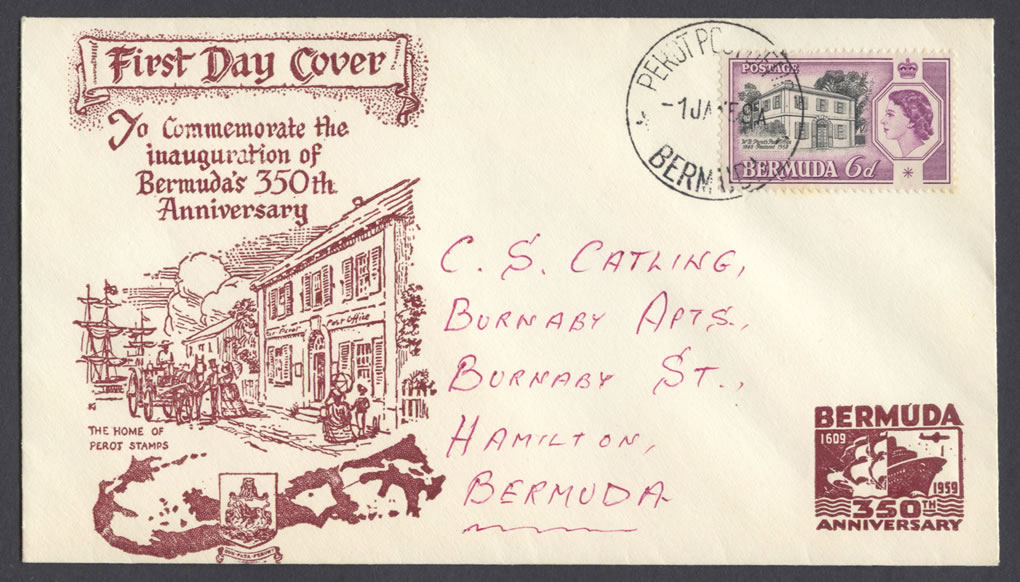 First Day Cover
To Commemorate the
inauguration of
Bermuda's 350th
Anniversary
Post Office
THE HOME OF
PEROT STAMPS
PEROT POST
-1 JA 59
BERMUDA
POSTAGE
W.B. Perot's Post Office
1848 Restored 1959
BERMUDA 6d.
C. S. CATLING,
BURNABY APTS.,
BURNABY ST.,
HAMILTON,
BERMUDA
BERMUDA
1609
1959
350TH
ANNIVERSARY